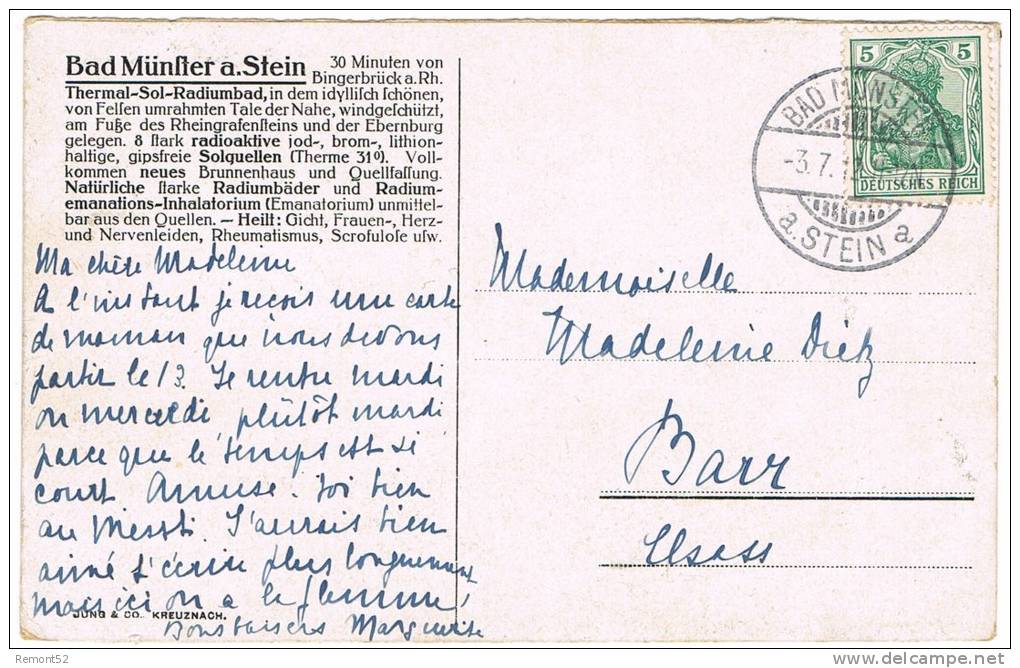 Bad Münster a. Stein 30 Minuten von
Bingerbrück a. Rh.
Thermal-Sol-Radiumbad, in dem idyllisch schönen,
von Felsen umrahmten Tale der Nahe, windgeschützt,
am Fuße des Rheingrafensteins und der Ebernburg
gelegen. 8 stark radioaktive jod-, brom-, lithion-
haltige, gipsfreie Solquellen (Therme 31°). Voll-
kommen neues Brunnenhaus und Quellfassung.
Natürliche starke Radiumbäder und Radium-
emanations-Inhalatorium (Emanatorium) unmittel-
bar aus den Quellen. — Heilt: Gicht, Frauen-, Herz-
und Nervenleiden, Rheumatismus, Scrofulose usw.
Ma chère Madeleine
A l'instant je reçois une carte
de maman que nous devons
partir le 13. Je rentre mardi
ou mercredi plûtôt mardi
parce que le temps est si
court Amuse-toi bien
au Messti. J'aurais bien
aimé t'écrire plus longuement
mais ici on a la flemme!
Bons baisers Marguerite
JUNG & CO. KREUZNACH.
5 5
DEUTSCHES REICH
BAD MÜNSTER
-3.7.
a. STEIN a
Mademoiselle
Madeleine Dietz
Barr
Elsass
Remont52
delcampe.net